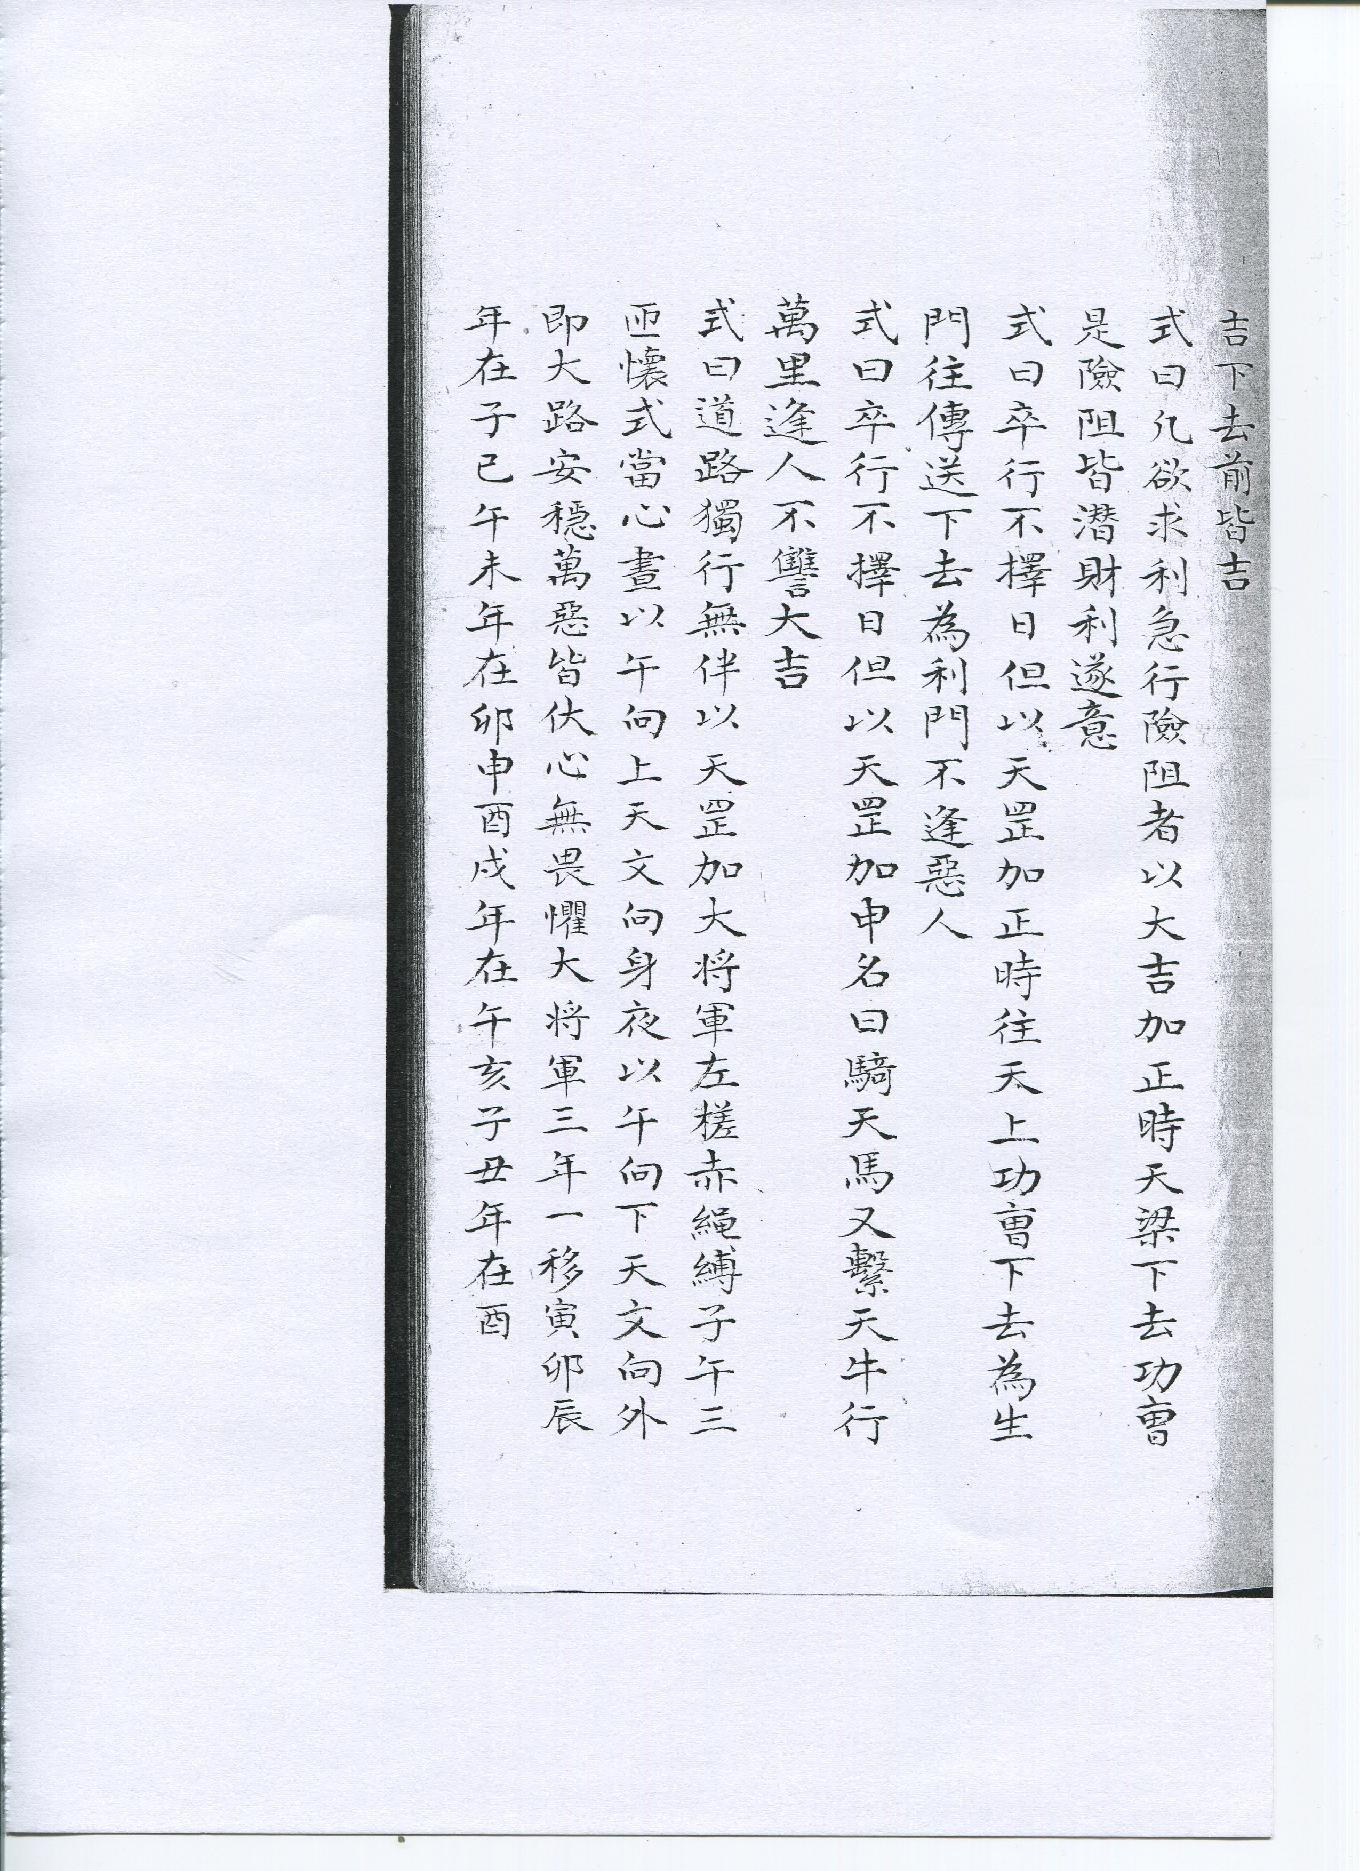 吉下去前皆吉
式曰凡欲求利急行險阻者以大吉加正時天梁下去功曹
是險阻皆潛財利遂意
式曰卒行不擇日但以天罡加正時往天上功曹下去為生
門往傳送下去為利門不逢惡人
式曰卒行不擇日但以天罡加申名曰騎天馬又繫天牛行
萬里逢人不讐大吉
式曰道路獨行無伴以天罡加大將軍左槎赤繩縛子午三
匝懷式當心晝以午向上天文向身夜以午向下天文向外
即大路安穩萬惡皆伏心無畏懼大將軍三年一移寅卯辰
年在子巳午未年在卯申酉戌年在午亥子丑年在酉